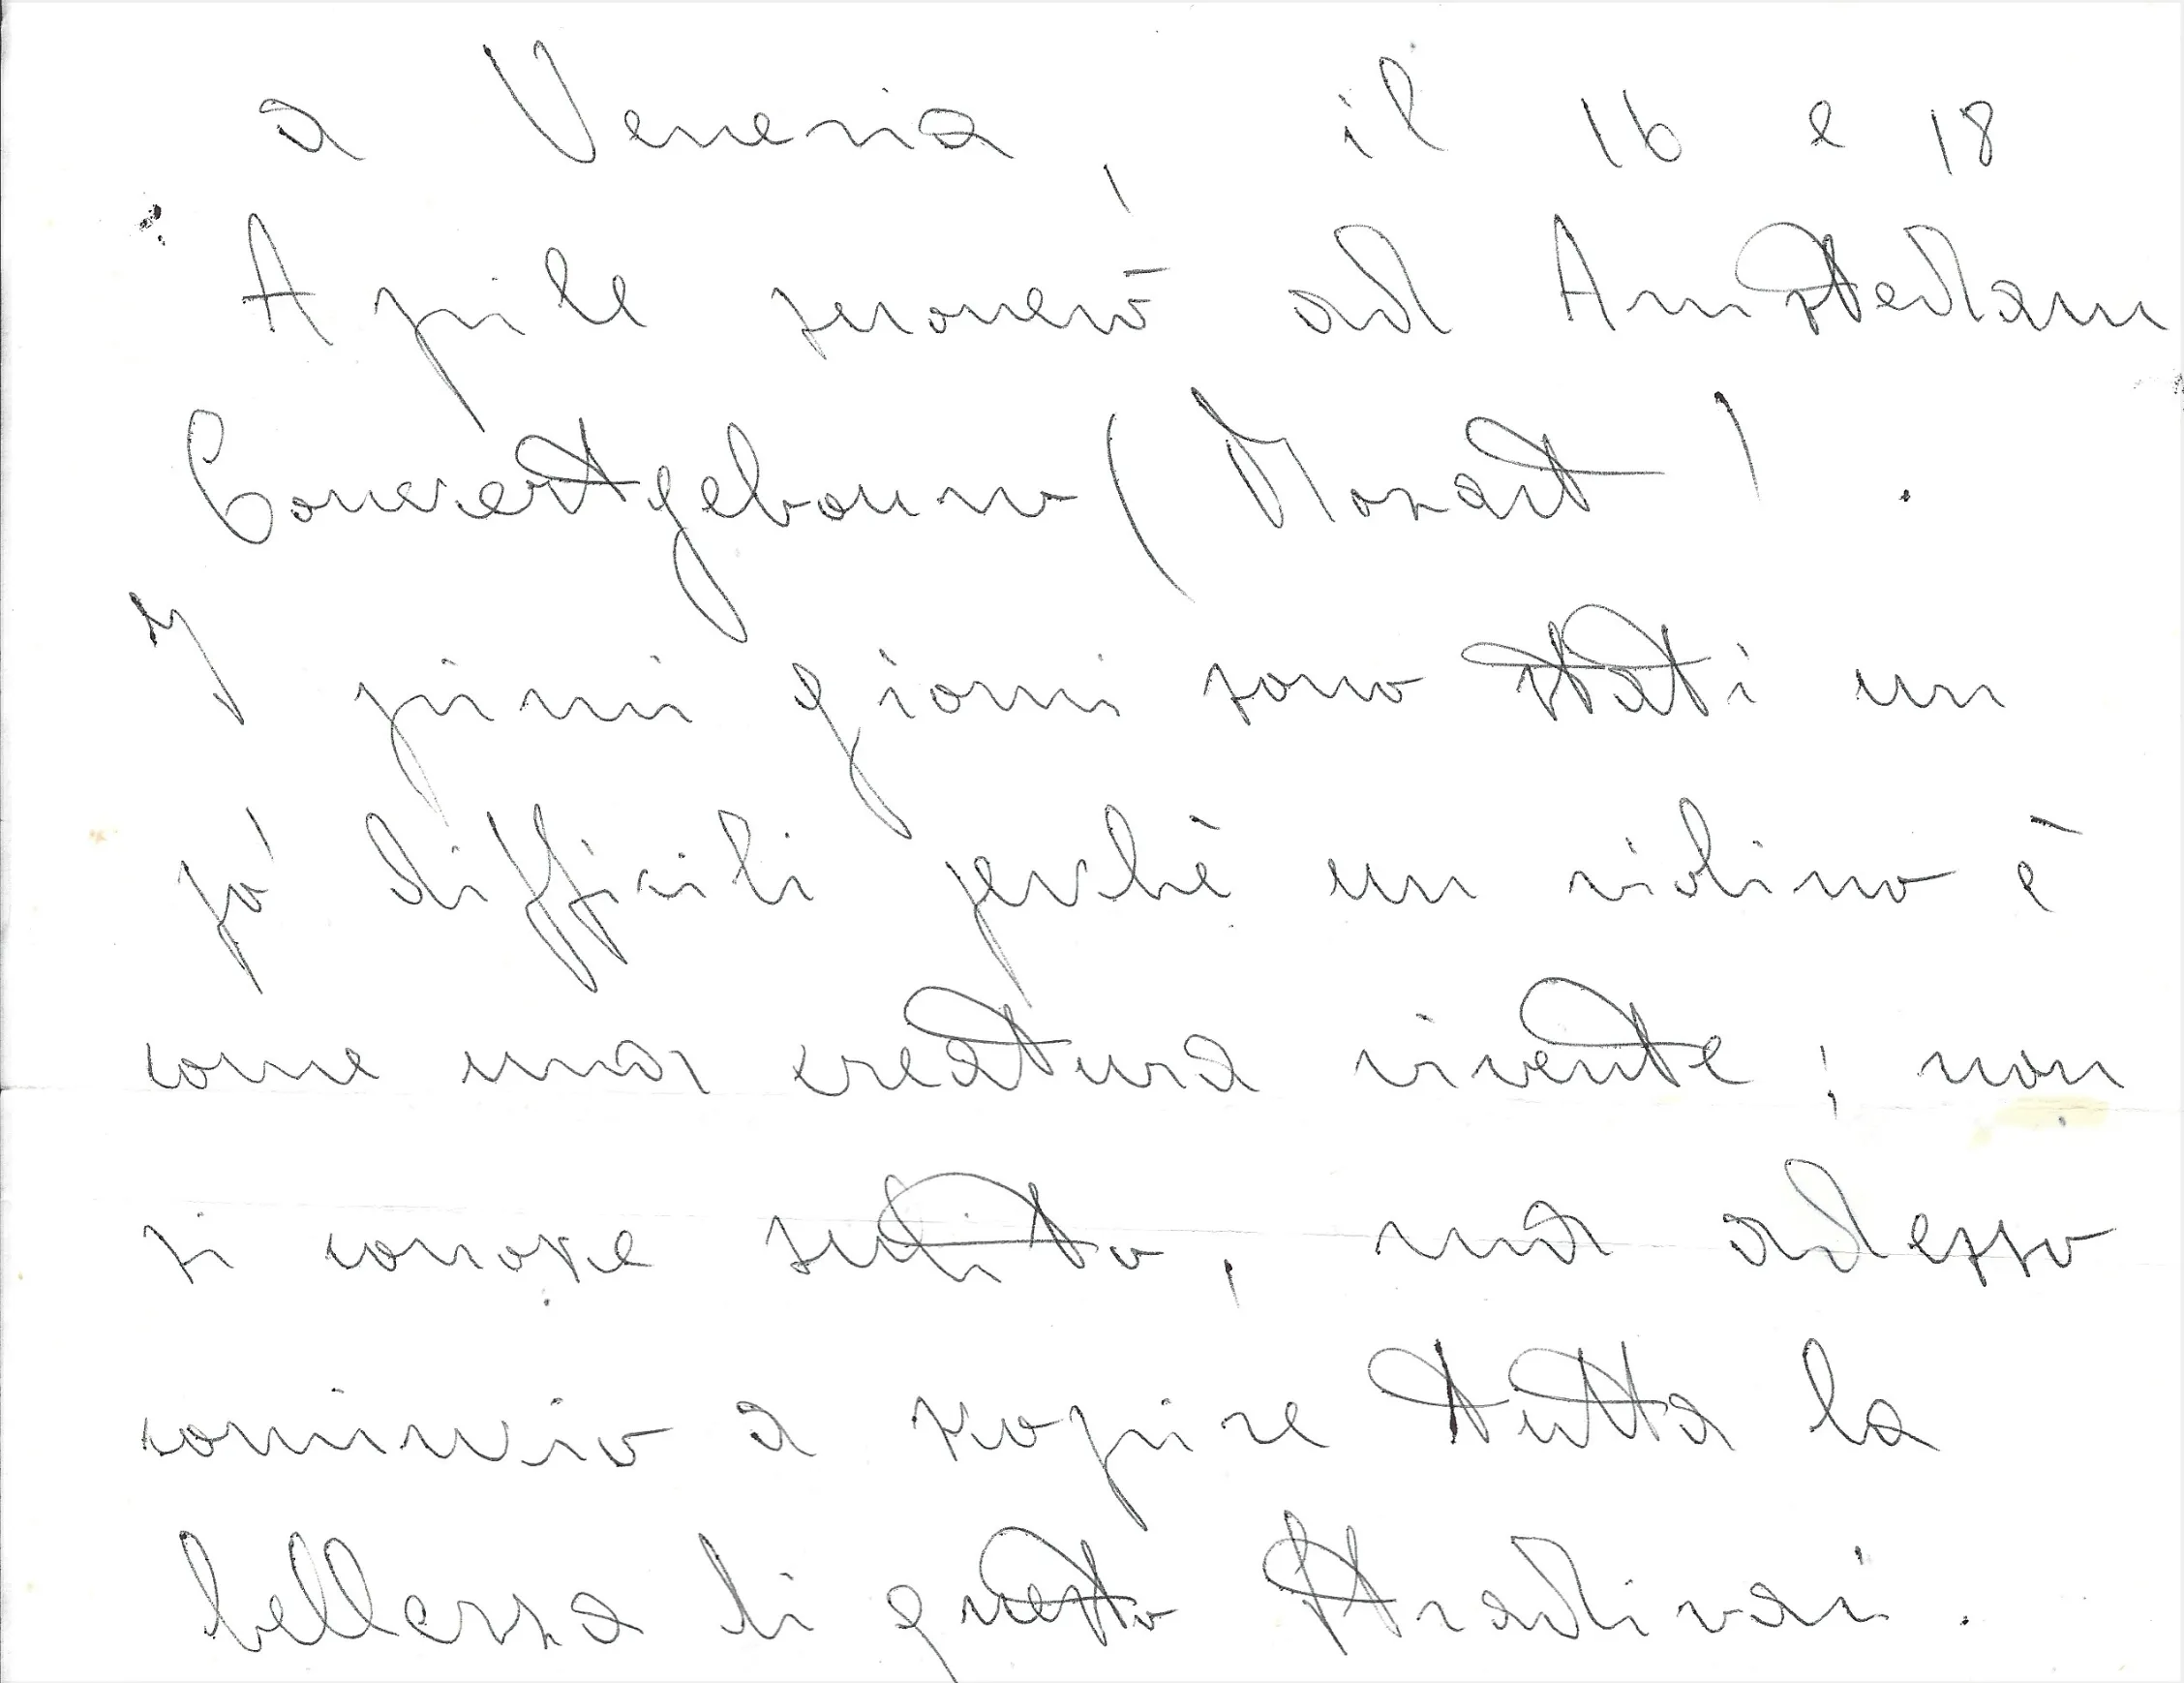 a Venezia, il 16 e 18
Aprile suonerò ad Amsterdam
Concertgebouw (Mozart).
I primi giorni sono stati un
pò difficili perchè un violino è
come una creatura vivente; non
si conosce subito, ma adesso
comincio a scoprire tutta la
bellezza di questo Stradivari.